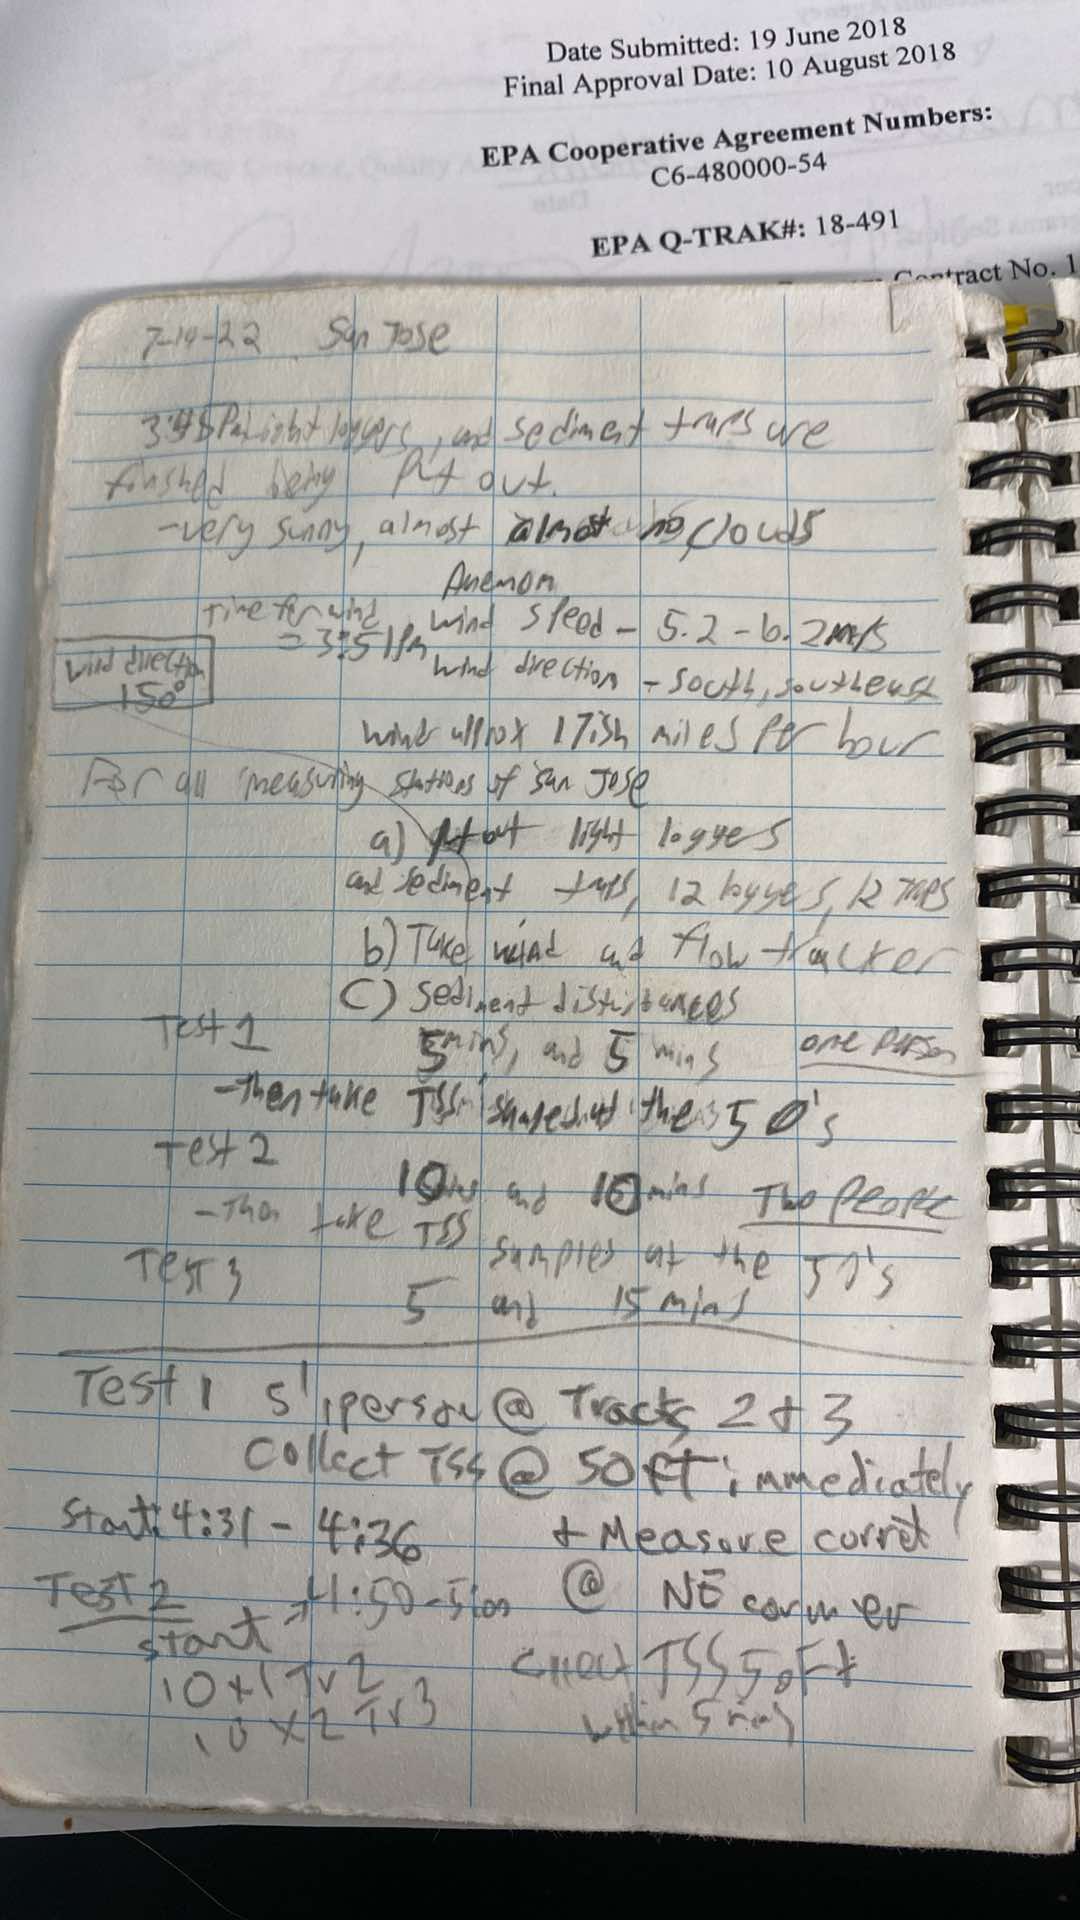 Date Submitted: 19 June 2018
Final Approval Date: 10 August 2018
EPA Cooperative Agreement Numbers:
C6-480000-54
EPA Q-TRAK#: 18-491
Contract No. 1
7-19-22 San Jose
light loggers, and sediment traps are
finished being Put out.
-very sunny, almost almost no clouds
Anemom
Time for wind
= 3:51Pm
wind speed - 5.2 - 6.2
wind direction
150°
wind direction - South, southeast
wind approx 17ish miles Per hour
For all measuring stations of San Jose
a) Put out light loggers
and sediment traps, 12 loggers, 12 traps
b) Take wind and flow tracker
C) Sediment
Test 1
5 mins, and 5 mins one Person
-then take TSS the 50's
Test 2
10 mins and 10 mins Two People
-Then take TSS samples at the 50's
Test 3
5 and 15 mins
Test 1 5' 1person @ Tracts 2 + 3
Collect TSS @ 50 FT immediately
Start: 4:31 - 4:36
+ Measure corret
@ NE corner
Test 2
start 4:50-
10 x 1 Tr 2
10 x 2 Tr 3
Collect TSS 50Ft
within 5 mins